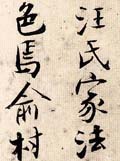 汪氏家法
色焉俞村